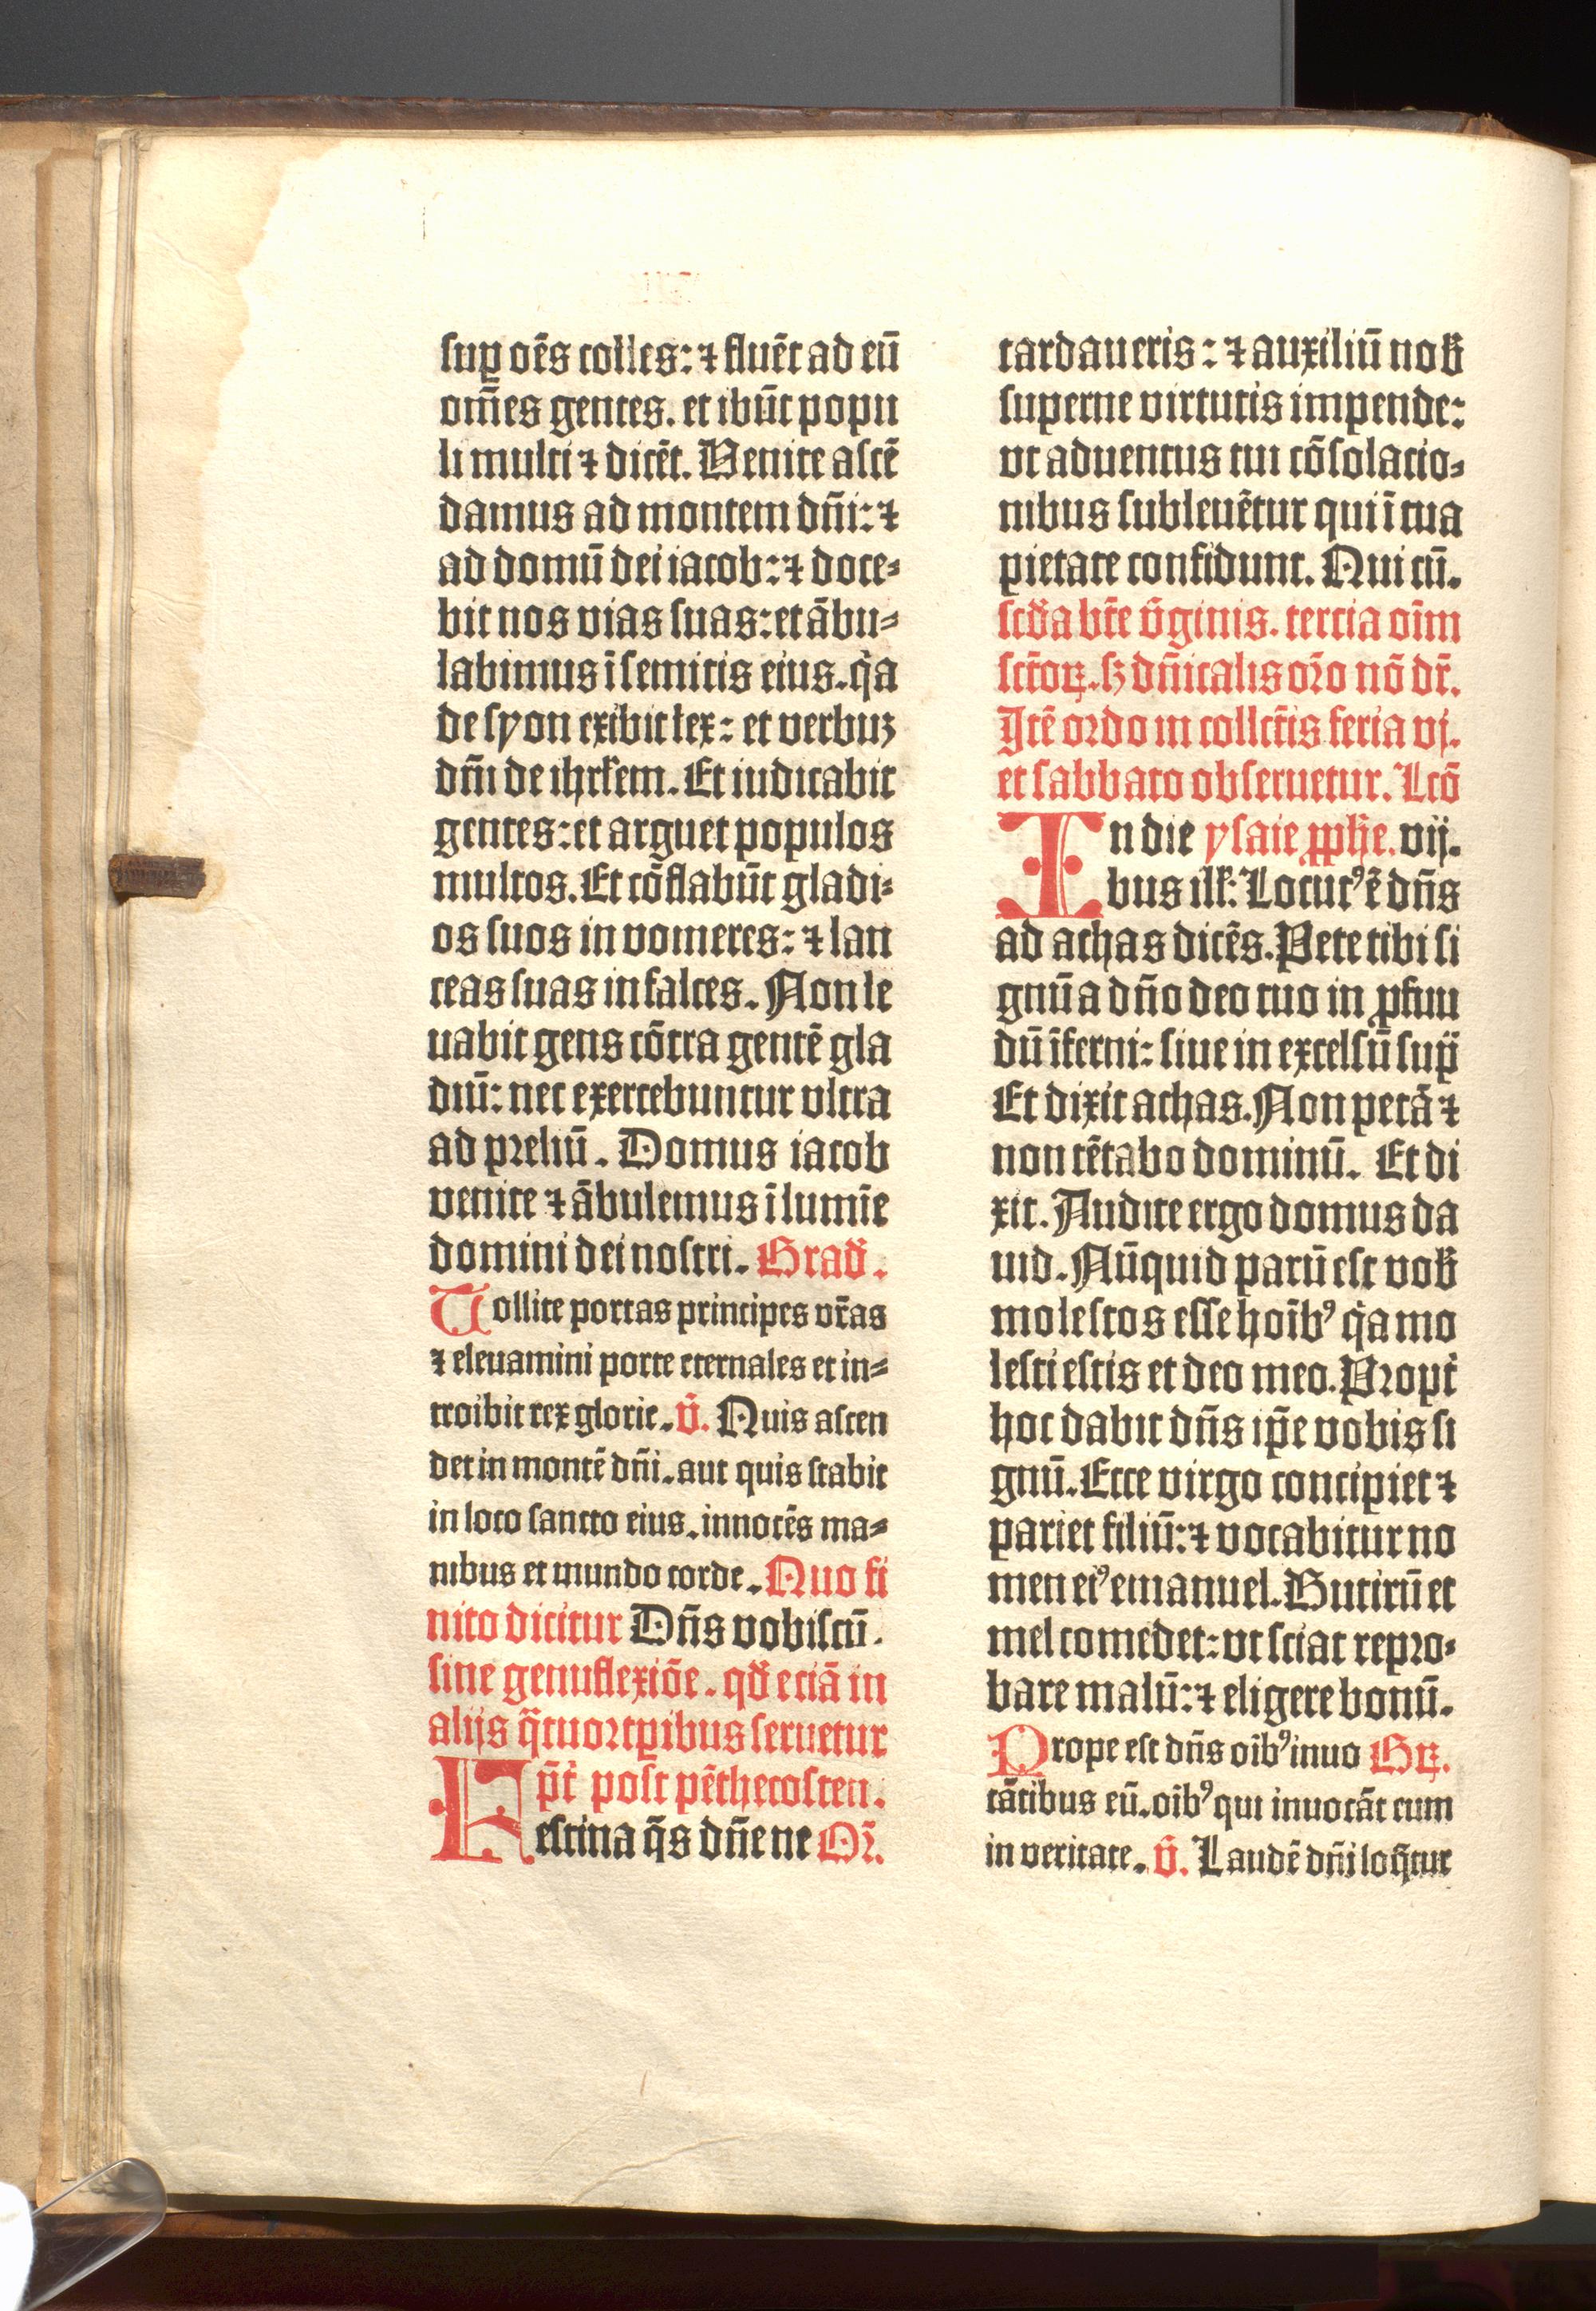 sup oēs colles: ⁊ fluēt ad eū
om̄es gentes. et ibūt popu
li multi ⁊ dicēt. Venite ascē
damus ad montem dn̄i: ⁊
ad domū dei iacob: ⁊ doce⸗
bit nos vias suas: et ābu⸗
labimus ī semitis eius. q̇a
de syon exibit lex: et verbuꝫ
dn̄i de ihrłem. Et iudicabit
gentes: et arguet populos
multos. Et cōflabūt gladi⸗
os suos in vomeres: ⁊ lan
ceas suas in falces. Non le
uabit gens cōtra gentē gla
diū: nec exercebuntur vltra
ad preliū. Domus iacob
venite ⁊ ābulemus ī lumīe
domini dei nostri. Grad̄.
Tollite portas principes vr̄as
⁊ eleuamini porte eternales et in⸗
troibit rex glorie. v̄. Quis ascen
det in montē dn̄i. aut quis stabit
in loco sancto eius. innocēs ma⸗
nibus et mundo corde. Quo fi
nito dicitur Dn̄s vobiscū.
sine genuflexiōe. qd̄ eciā in
alijs q̄tuor tp̄ibus seruetur
Ep̄t post pēthecosten.
Festina q̄s dn̄e ne Or̄.
tardaueris: ⁊ auxiliū nob̄
superne virtutis impende:
vt aduentus tui cōsolacio⸗
nibus subleuētur qui ī tua
pietate confidunt. Qui cū.
scd̄a bt̄e v̄ginis. tercia oīm
sct̄oꝝ. sꝫ dn̄icalis or̄o nō dr̄.
Itē ordo in collct̄is feria vj.
et sabbato obseruetur. Lcō
In die ysaie ꝓph̄e. vij.
bus illꝭ: Locutꝰ ē dn̄s
ad achas dicēs. Pete tibi si
gnū a dn̄o deo tuo in ꝓfuu
dū īferni: siue in excelsū sup̄
Et dixit achas. Non petā ⁊
non tētabo dominū. Et di
xit. Audite ergo domus da
uid. Nūquid parū est vob̄
molestos esse hoībꝰ q̇a mo
lesti estis et deo meo. Propt̄
hoc dabit dn̄s ip̄e vobis si
gnū. Ecce virgo concipiet ⁊
pariet filiū: ⁊ vocabitur no
men eiꝰ emanuel. Butirū et
mel comedet: vt sciat repro⸗
bare malū: ⁊ eligere bonū.
Prope est dn̄s oībꝰ inuo Gꝝ.
cātibus eū. oībꝰ qui inuocāt eum
in veritate. v̄. Laudē dn̄i loq̄tur